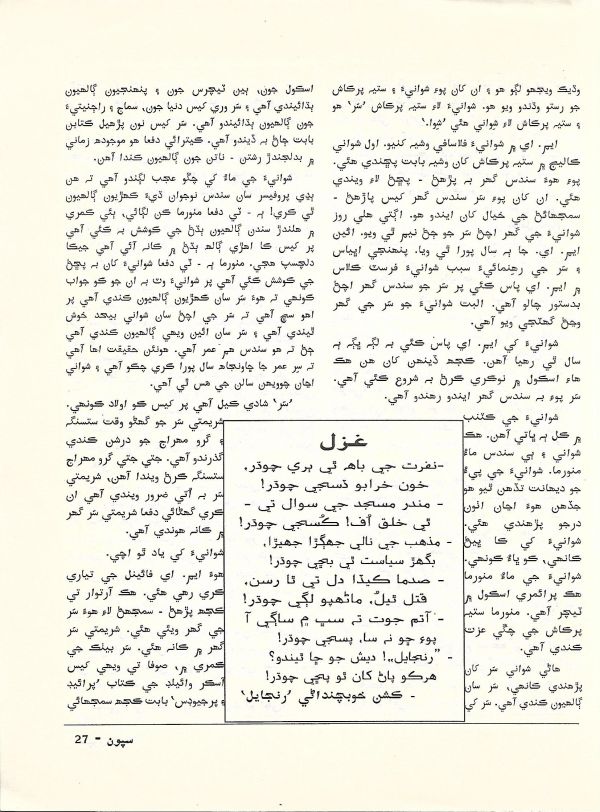 وڌيڪ ويجهو لڳو هو ۽ ان کان پوءِ شوانيءَ ۽ ستيہ پرڪاش
جو رستو وڌندو ويو هو. شوانيءَ لاءِ ستيہ پرڪاش ’سَر‘ هو
۽ ستيہ پرڪاش لاءِ شواني هئي ’شِوا.‘
ايم. اي ۾ شوانيءَ فلاسافي وشيہ کنيو. اول شواني
ڪاليج ۾ ستيہ پرڪاش کان وشيہ بابت پڇندي هئي.
پوءِ هوءَ سندس گهر بہ پڙهڻ - پڇڻ لاءِ ويندي
هئي. ان کان پوءِ سَر سندس گهر کيس پاڙهڻ -
سمجهائڻ جي خيال کان ايندو هو. اڳتي هلي روز
شوانيءَ جي گهر اچڻ سَر جو ڄڻ نيم ٿي ويو. ائين
ايم. اي. جا ٻہ سال پورا ٿي ويا. پنهنجي اڀياس
۽ سَر جي رهنمائيءَ سبب شوانيءَ فرسٽ ڪلاس
۾ ايم. اي پاس ڪئي پر سَر جو سندس گهر اچڻ
بدستور چالو آهي. البت شوانيءَ جو سَر جي گهر
وڃڻ گهٽجي ويو آهي.
شوانيءَ کي ايم. اي پاس ڪئي بہ لڳ ڀڳ ٻہ
سال ٿي رهيا آهن. ڪجهہ ڏينهن کان هن هڪ
هاءِ اسڪول ۾ نوڪري ڪرڻ بہ شروع ڪئي آهي.
سَر پوءِ بہ سندس گهر ايندو رهندو آهي.
شوانيءَ جي ڪٽنب
۾ ڪل ٻہ ڀاتي آهن. هڪ
شواني ۽ ٻي سندس ماءُ
منورما. شوانيءَ جي پيءُ
جو ديهانت تڏهن ٿيو هو
جڏهن هوءَ اڃان اٺون
درجو پڙهندي هئي.
شوانيءَ کي ڪا ڀيڻ
ڪانهي، ڪو ڀاءُ ڪونهي.
شوانيءَ جي ماءُ منورما
هڪ پرائمري اسڪول ۾
ٽيچر آهي. منورما ستيہ
پرڪاش جي چڱي عزت
ڪندي آهي.
هاڻي شواني سَر کان
پڙهندي ڪانهي، سَر سان
ڳالهيون ڪندي آهي. سَر کي
اسڪول جون، ٻين ٽيچرس جون ۽ پنهنجيون ڳالهيون
ٻڌائيندي آهي ۽ سَر وري کيس دنيا جون، سماج ۽ راڄنيتيءَ
جون ڳالهيون ٻڌائيندو آهي. سَر کيس نون پڙهيل ڪتابن
بابت ڄاڻ بہ ڏيندو آهي. ڪيترائي دفعا هو موجودهہ زماني
۾ بدلجندڙ رشتن - ناتن جون ڳالهيون ڪندا آهن.
شوانيءَ جي ماءُ کي چڱو عجب لڳندو آهي تہ هن
ٻڍي پروفيسر سان سندس نوجوان ڌيءَ ڪهڙيون ڳالهيون
ٿي ڪري! ٻہ - ٽي دفعا منورما ڪن لڳائي، ٻئي ڪمري
۾ هلندڙ سندن ڳالهيون ٻڌڻ جي ڪوشش بہ ڪئي آهي
پر کيس ڪا اهڙي ڳالهہ ٻڌڻ ۾ ڪانہ آئي آهي جيڪا
دلچسپ هجي. منورما ٻہ - ٽي دفعا شوانيءَ کان بہ پڇڻ
جي ڪوشش ڪئي آهي پر شوانيءَ وٽ بہ ان جو ڪو جواب
ڪونهي تہ هوءَ سَر سان ڪهڙيون ڳالهيون ڪندي آهي پر
اهو سچ آهي تہ سَر جي اچڻ سان شواني بيحد خوش
ٿيندي آهي ۽ سَر سان ائين ويهي ڳالهيون ڪندي آهي
ڄڻ تہ هو سندس هم عمر آهي. هونئن حقيقت اها آهي
تہ سِر عمر جا چاونجاھہ سال پورا ڪري چڪو آهي ۽ شواني
اڃان چوويهن سالن جي مَس ٿي آهي.
’سَر‘ شادي ڪيل آهي پر کيس ڪو اولاد ڪونهي.
شريمتي سَر جو گهڻو وقت ستسنگہ
۽ گرو مهراج جو درشن ڪندي
گذرندو آهي. جتي جتي گرو مهراج
ستسنگہ ڪرڻ ويندا آهن، شريمتي
سَر بہ اُتي ضرور ويندي آهي ان
ڪري گهڻائي دفعا شريمتي سَر گهر
۾ ڪانہ هوندي آهي.
شوانيءَ کي ياد ٿو اچي.
هوءَ ايم. اي فائينل جي تياري
ڪري رهي هئي. هڪ آرتوار تي
ڪجهہ پڙهڻ - سمجهڻ لاءِ هوءَ سَر
جي گهر ويئي هئي. شريمتي سَر
گهر ۾ ڪانہ هئي. سَر بينڪ جي
ڪمري ۾، صوفا تي ويهي کيس
آسڪر وائيلڊ جي ڪتاب ’پرائيڊ
۽ پرجيوڊس‘ بابت ڪجهہ سمجهائي
غزل
-نفرت جي باھہ ٿي ٻري چوڌر،
خون خرابو ڏسجي چوڌر!
- مندر مسجد جي سوال تي -
ٿي خلق اُف! ڪُسجي چوڌر!
- مذهب جي نالي جهڳڙا جهيڙا،
بگهڙ سياست ٿي بچي چوڌر!
- صدما ڪيڏا دل تي ٿا رسن،
قتل ٿيلُ، ماڻهپو لڳي چوڌر!
- آتم جوت تہ سڀ ۾ ساڳي آ
پوءِ ڇو نہ سا، پسجي چوڌر!
- ”رنجايل“! ديش جو ڇا ٿيندو؟
هرڪو پاڻ کان ٿو ڀڄي چوڌر!
- ڪشن خوبچنداڻي ’رنجايل‘
سپون - 27